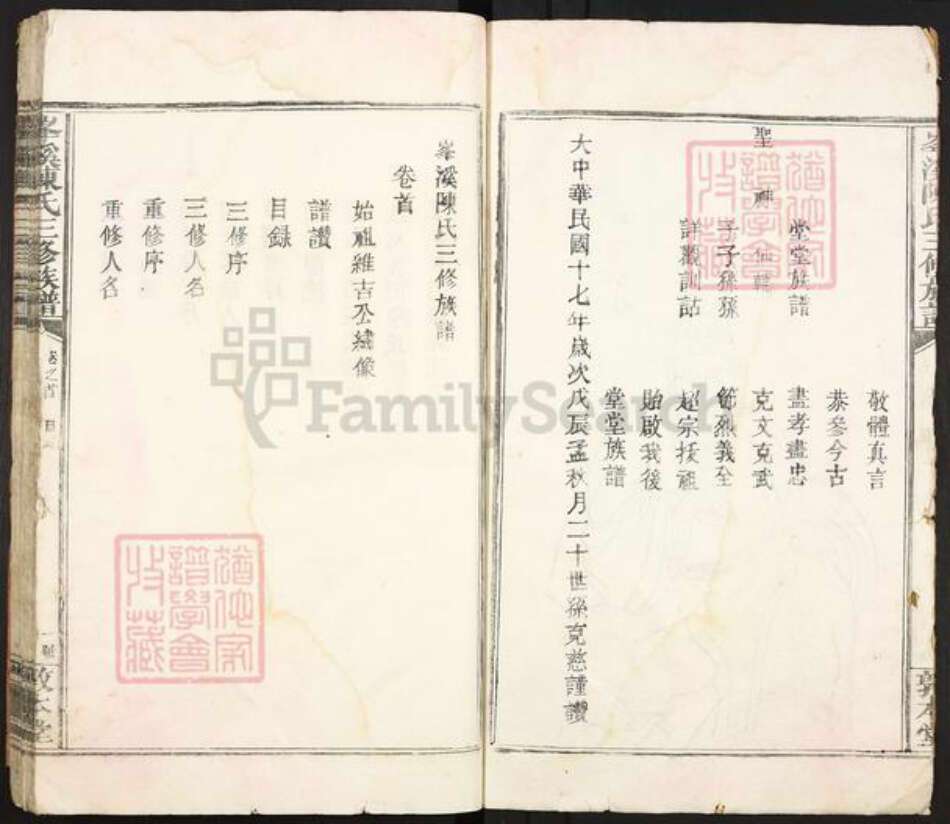 敬體真言
恭參今古
堂堂族譜
盡孝盡忠
克文克武
子子孫孫
節烈義全
詳觀訓詁
超宗扶祖
貽啟我後
堂堂族譜
大中華民國十七年歲次戊辰孟秋月二十世孫克慈謹讚
峯溪陳氏三修族譜
敦本堂
峯溪陳氏三修族譜
卷首
始祖雜吉公繡像
譜讚
目錄
三修序
三修人名
重修序
重修人名
峯溪陳氏三修族譜
卷之首
目
敦本堂
收藏
譜學會
FamilySearch